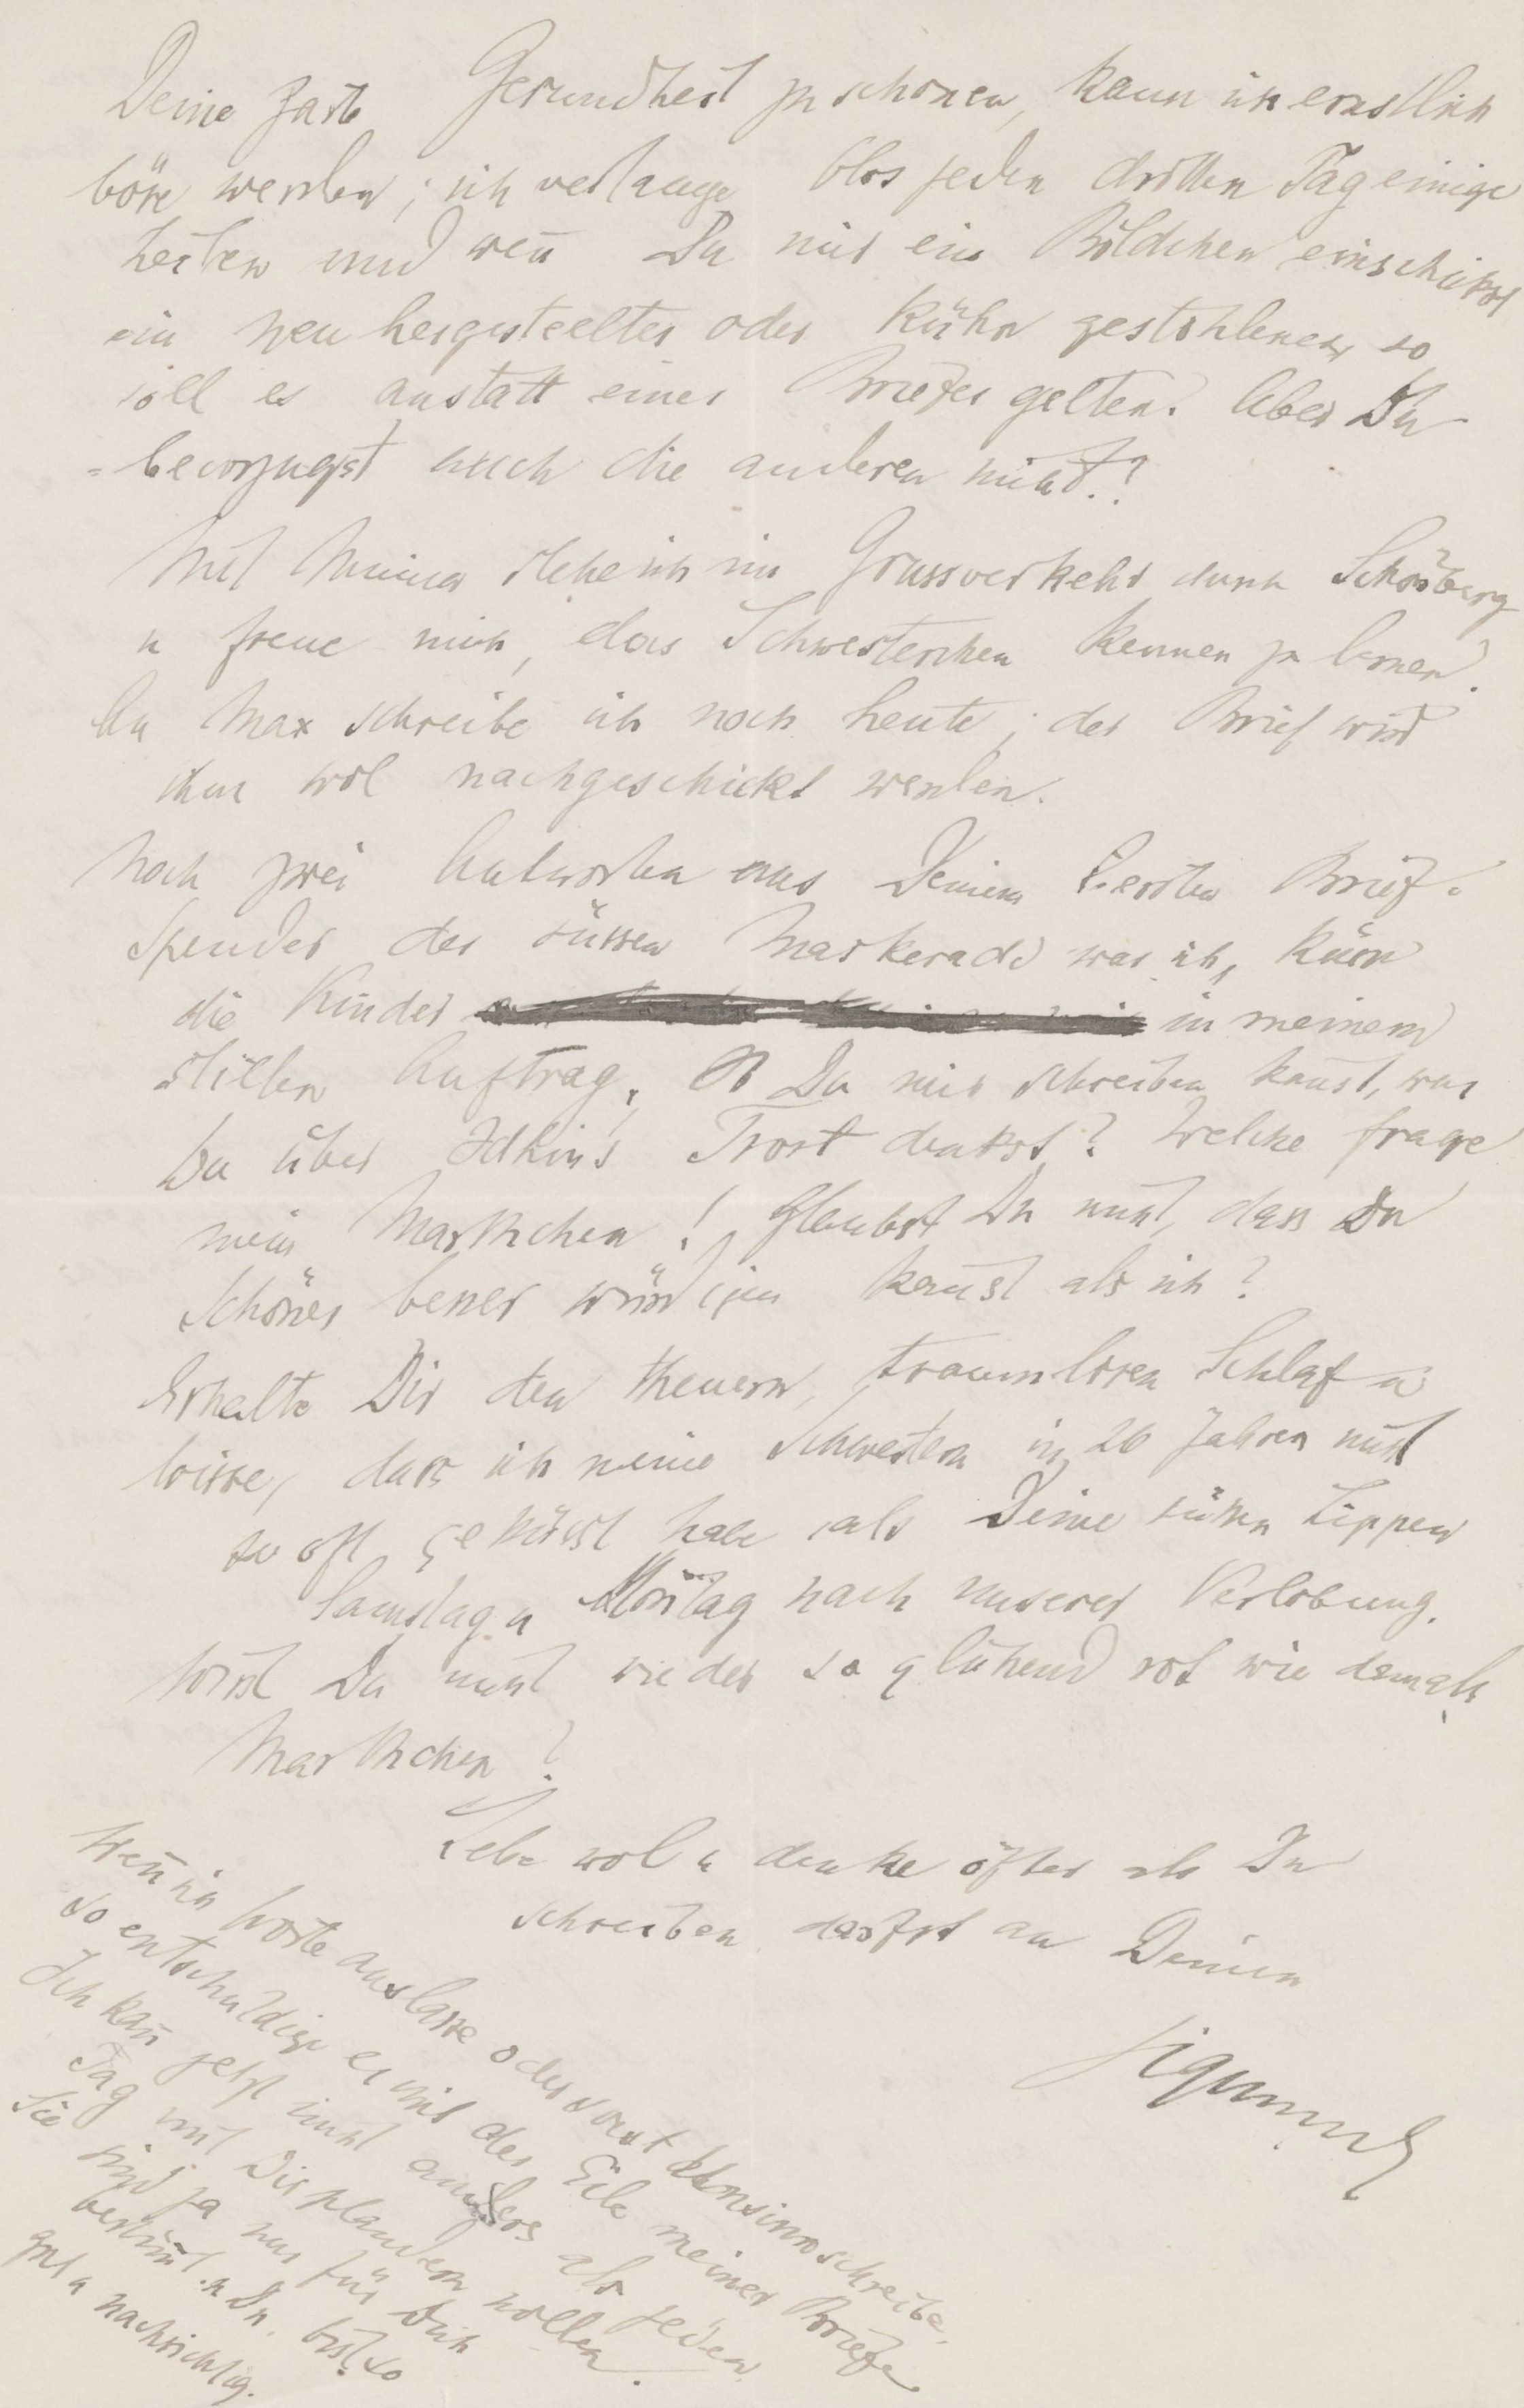 Deine zarte Gesundheit zu schonen, kann ich ernstlich
böse werden; ich verlange blos jeden dritten Tag einige
Zeilen und weñ Du mir ein Bildchen einschickst
ein neu hergestelltes oder kühn gestohlenes, so
soll es anstatt eines Briefes gelten. Aber Du
bevorzugst auch die anderen nicht.?
Mit Minna stehe ich im Grussverkehr durch Schönberg
u freue mich, das Schwesterchen kennen zu lernen.
An Max schreibe ich noch heute; der Brief wird
ihm wol nachgeschickt werden.
Noch zwei Antworten aus Deinem ersten Brief.
Spender der süssen Maskerade war ich,
die Kinder in meinem
stillen Auftrag. Ob Du mir schreiben kañst, was
Du über Trost denkst? Welche Frage
mein Marthchen! Glaubst Du nicht, dass Du
Schönes besser würdigen kañst als ich?
Erhalte Dir den theuern, traumlosen Schlaf u
wisse, dass ich meine Schwestern in 26 Jahren nicht
so oft geküsst habe als Deine süßen Lippen
Samstag u Montag nach unserer Verlobung.
Wirst Du nicht wieder so glühend rot wie damals
Marthchen?
Lebe wol u denke öfter als Du
schreiben darfst an Deinen
Sigmund
Weñ ich Worte auslasse oder sonst Unsinn schreibe,
so entschuldige es mit der Eile meiner Briefe
Ich kañ jetzt nicht anders als jeden
Tag mit Dir plaudern wollen.
Sie sind ja nur für Dich
bestim̃t u Du bist so
gut u nachsichtig.